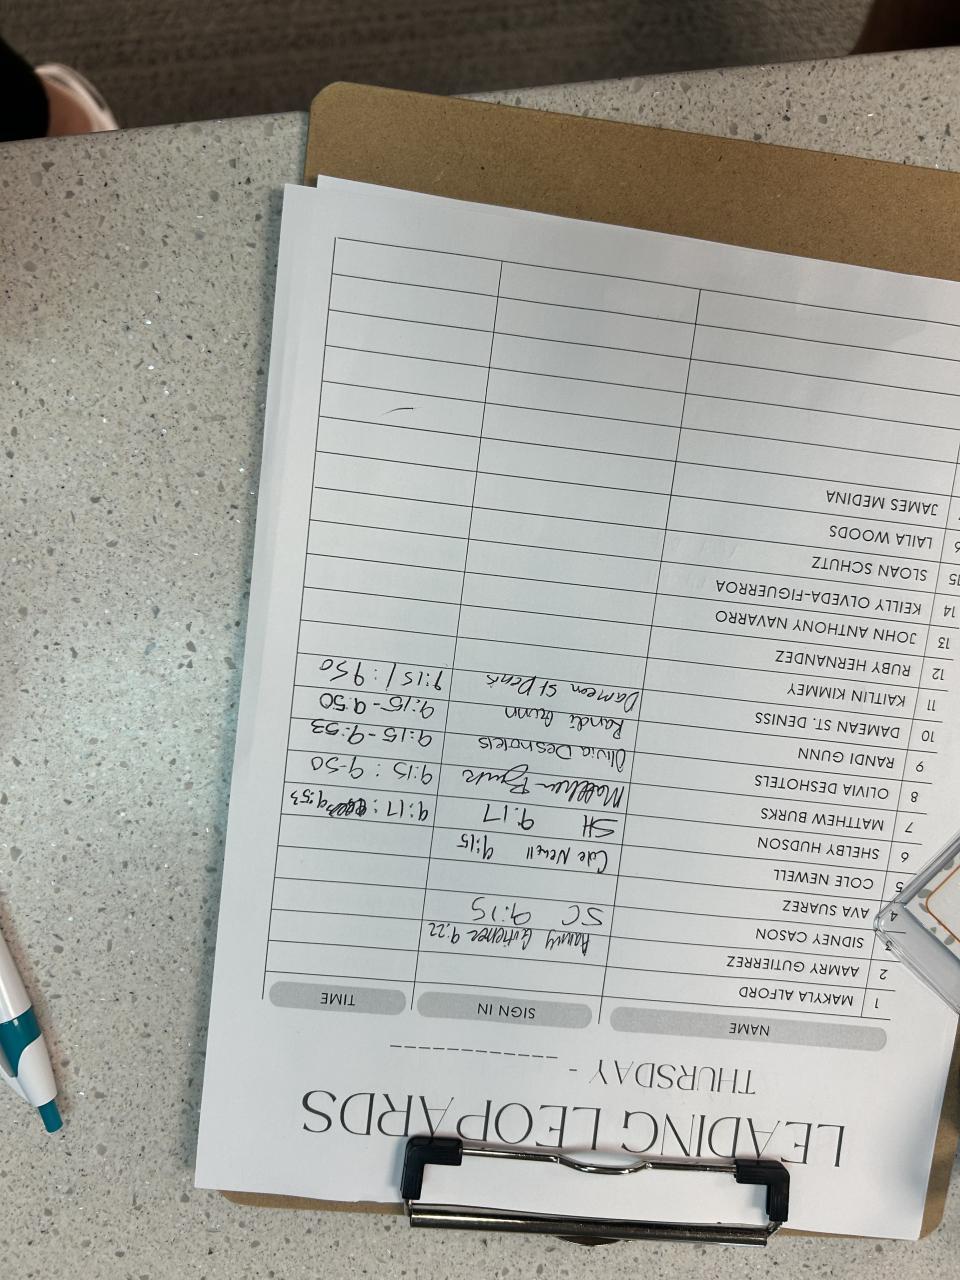 LEADING LEOPARDS
THURSDAY - ____________
NAME SIGN IN TIME
1 MAKYLA ALFORD
2 AAMRY GUTIERREZ Aamry Gutierrez 9:22
3 SIDNEY CASON SC 9:15
4 AVA SUAREZ
5 COLE NEWELL Cole Newell 9:15
6 SHELBY HUDSON SH 9:17 9:17: 9:53
7 MATTHEW BURKS Matthew Burks 9:15: 9-50
8 OLIVIA DESHOTELS Olivia Deshotels 9:15-9:53
9 RANDI GUNN Randi Gunn 9:15-9:50
10 DAMEAN ST. DENISS Damean St Denis 9:15 / 9:50
11 KAITLIN KIMMEY
12 RUBY HERNANDEZ
13 JOHN ANTHONY NAVARRO
14 KEILLY OLVEDA-FIGUERROA
15 SLOAN SCHUTZ
6 LAILA WOODS
JAMES MEDINA